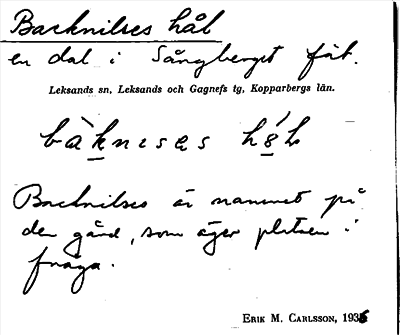 Backnilses hål
en dal i Sångberget fäb.
Leksands sn, Leksands och Gagnefs tg, Kopparbergs län.
bàknɩsəs
Backnilses är namnet på
den gård, som äger platsen i
fråga.
ERIK M. CARLSSON, 1935